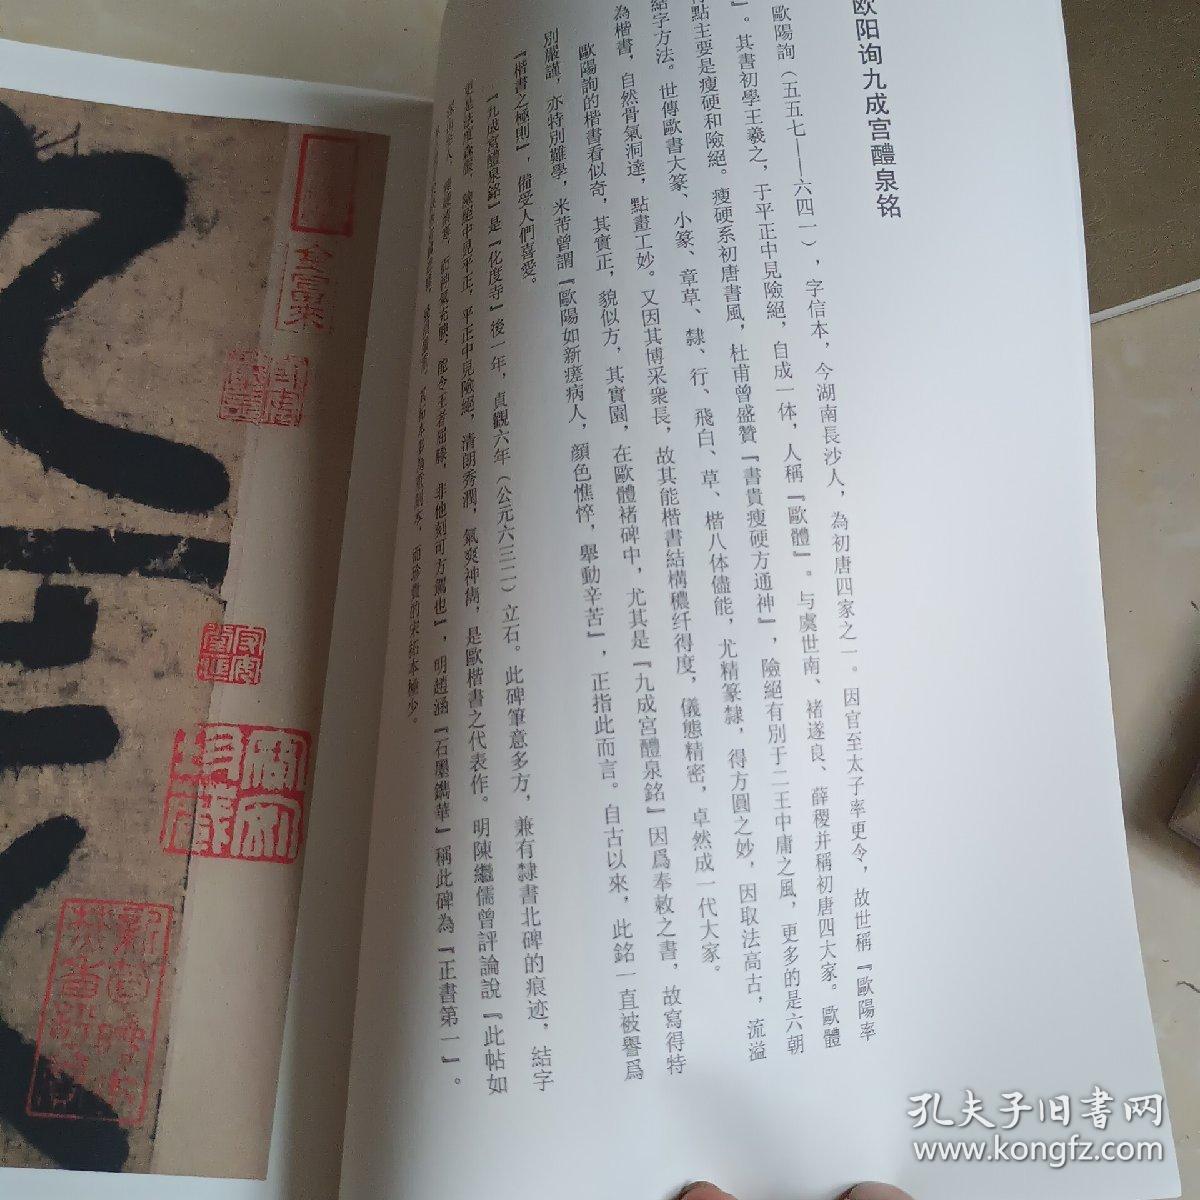 欧阳询九成宫醴泉铭
歐陽詢(五五七——六四一),字信本,今湖南長沙人,為初唐四家之一。因官至太子率更令,故世稱『歐陽率
』。其書初學王羲之,于平正中見險絕,自成一体,人稱『歐體』。与虞世南、褚遂良、薛稷并稱初唐四大家。歐體
點主要是瘦硬和險絕。瘦硬系初唐書風,杜甫曾盛贊『書貴瘦硬方通神』,險絕有別于二王中庸之風,更多的是六朝
結字方法。世傳歐書大篆、小篆、章草、隸、行、飛白、草、楷八体儘能,尤精篆隸,得方圓之妙,因取法高古,流溢
為楷書,自然骨氣洞達,點畫工妙。又因其博采衆長,故其能楷書結構穠纤得度,儀態精密,卓然成一代大家。
歐陽詢的楷書看似奇,其實正,貌似方,其實圓,在歐體褚碑中,尤其是『九成宮醴泉銘』因爲奉敕之書,故寫得特
別嚴謹,亦特別難學,米芾曾謂『歐陽如新瘥病人,顔色憔悴,舉動辛苦』,正指此而言。自古以來,此銘一直被譽爲
『楷書之極則』,備受人們喜愛。
『九成宮醴泉銘』是『化度寺』後一年,貞觀六年(公元六三二)立石。此碑筆意多方,兼有隸書北碑的痕迹,結字
更是法度森嚴,險勁中見平正,平正中見險絕,清朗秀潤,氣爽神雋,是歐楷書之代表作。明陳繼儒曾評論說『此帖如
氣充腴,能令王者屈膝,非他刻可方駕也』,明趙涵『石墨鐫華』稱此碑為『正書第一』。
而珍貴的宋拓本極少。
孔夫子旧书网
www.kongfz.com